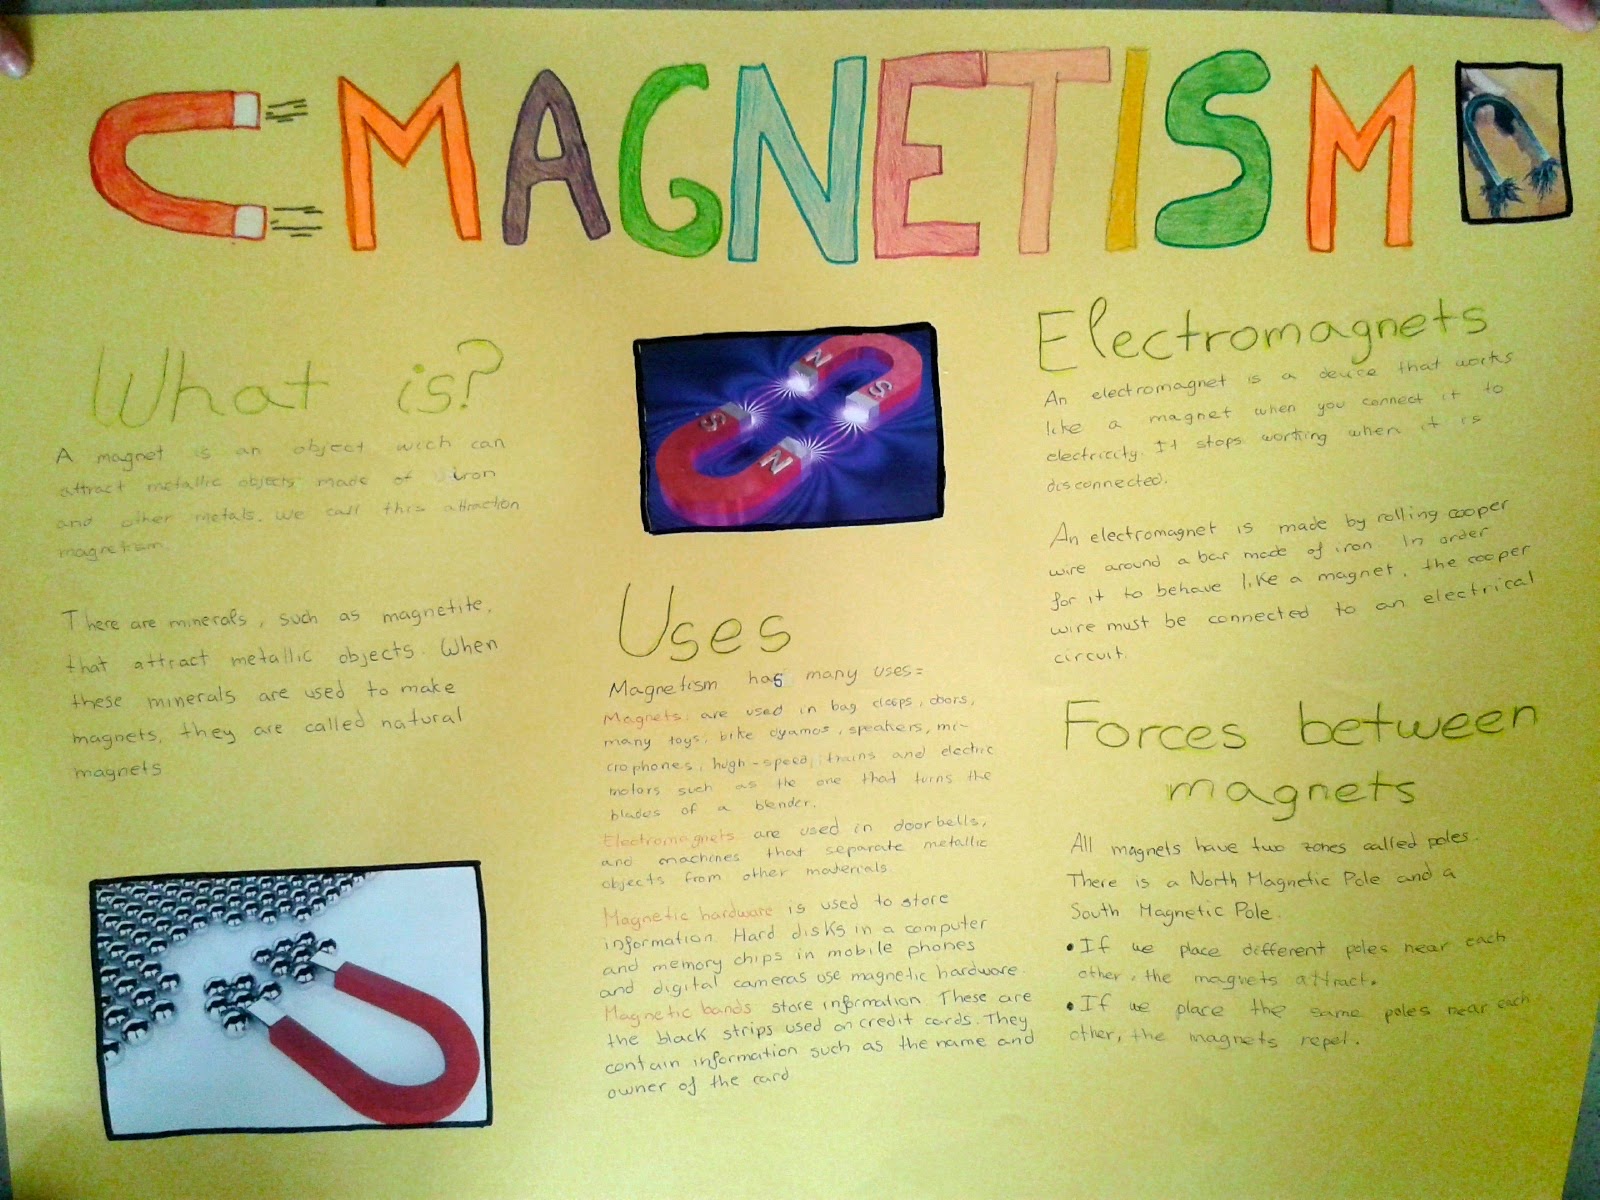 MAGNETISM
What is?
A magnet is an object wich can
attract metallic objects made of iron
and other metals. We call this attraction
magnetism.
There are minerals, such as magnetite,
that attract metallic objects. When
these minerals are used to make
magnets, they are called natural
magnets
N
S
S
N
Uses
Magnetism has many uses:
Magnets: are used in bag clasps, doors,
many toys, bike dyamos, speakers, mi-
crophones, hugh-speed, trains and electric
motors such as the one that turns the
blades of a blender.
Electromagnets are used in doorbells,
and machines that separate metallic
objects from other materials.
Magnetic hardware is used to store
information. Hard disks in a computer
and memory chips in mobile phones
and digital cameras use magnetic hardware.
Magnetic bands store information. These are
the black strips used on credit cards. They
contain information such as the name and
owner of the card
Electromagnets
An electromagnet is a device that works
like a magnet when you connect it to
electricity. It stops working when it is
disconnected.
An electromagnet is made by rolling cooper
wire around a bar made of iron. In order
for it to behave like a magnet, the cooper
wire must be connected to an electrical
circuit.
Forces between
magnets
All magnets have two zones called poles.
There is a North Magnetic Pole and a
South Magnetic Pole.
• If we place different poles near each
other, the magnets attract.
• If we place the same poles near each
other, the magnets repel.